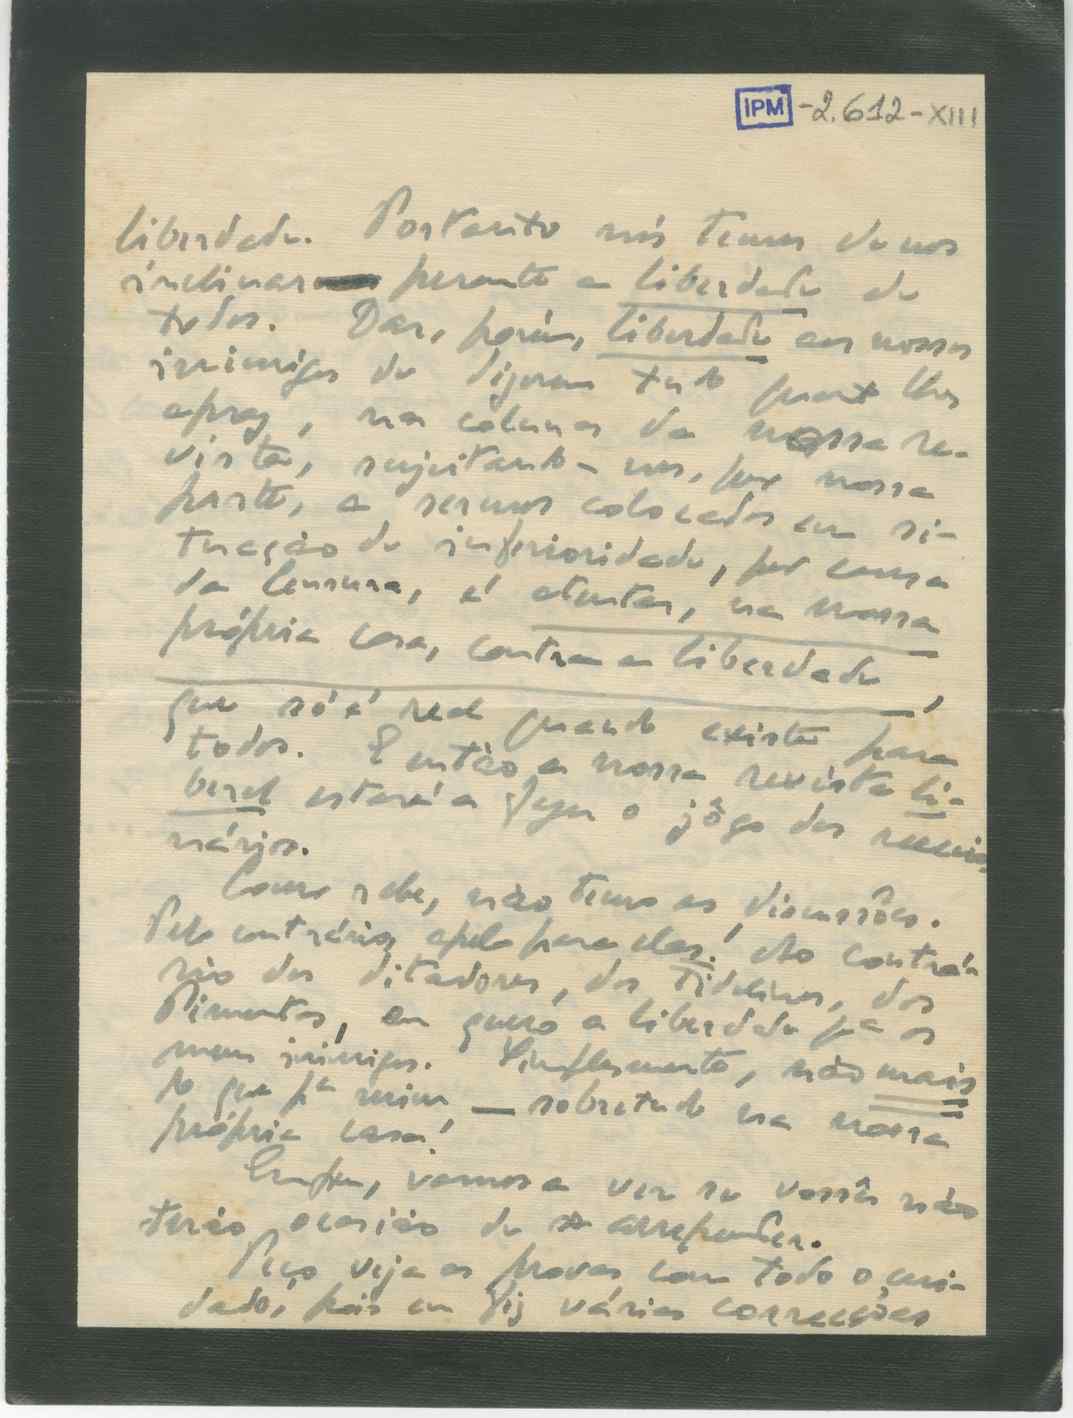 IPM -2.612-XIII
liberdade. Portanto nós temos de nos
inclinar perante a liberdade de
todos. Dar, porém, liberdade aos nossos
inimigos de dizerem tudo quanto lhes
apraz, nas colunas da nossa re-
vista, sujeitando-nos, por nossa
parte, a sermos colocados em si-
tuação de inferioridade, por causa
da Censura, é atentar, na nossa
própria casa, contra a liberdade,
que só é real quando existe para
todos. E então a nossa revista li-
beral estará a fazer o jôgo dos reaccio-
nários.
Como sabe, não temo as discussões.
Pelo contrário, apelo para elas! Ao contrá-
rio dos ditadores, dos Fidelinos, dos
Pimentas, eu quero a liberdade pª os
meus inimigos. Simplesmente, não mais
do que pª mim — sobretudo na nossa
própria casa!
Enfim, vamos a ver se vossês não
terão ocasião de se arrepender.
Peço veja as provas com todo o cui-
dado, pois eu fiz várias correcções